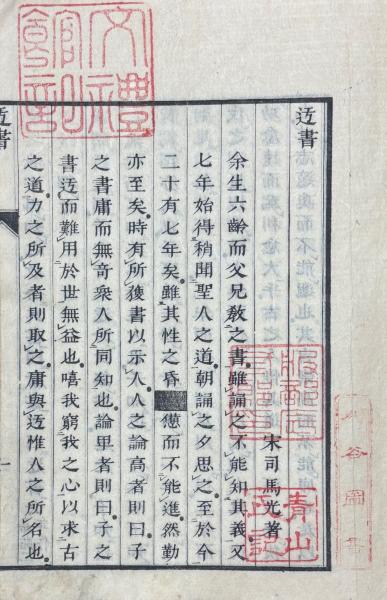 迃書
宋司馬光著
余生六齡而父兄敎之書雖誦之不能知其義又
七年始得稍聞聖人之道朝誦之夕思之至於今
二十有七年矣雖其性之昏憊而不能進然勤
亦至矣時有所獲書以示人人之論高者則曰子
之書庸而無奇衆人所同知也論卑者則曰子之
書迃而難用於世無益也嘻我窮我之心以求古
之道力之所及者則取之庸與迃惟人之所名也
迃書
青山
谷圖書